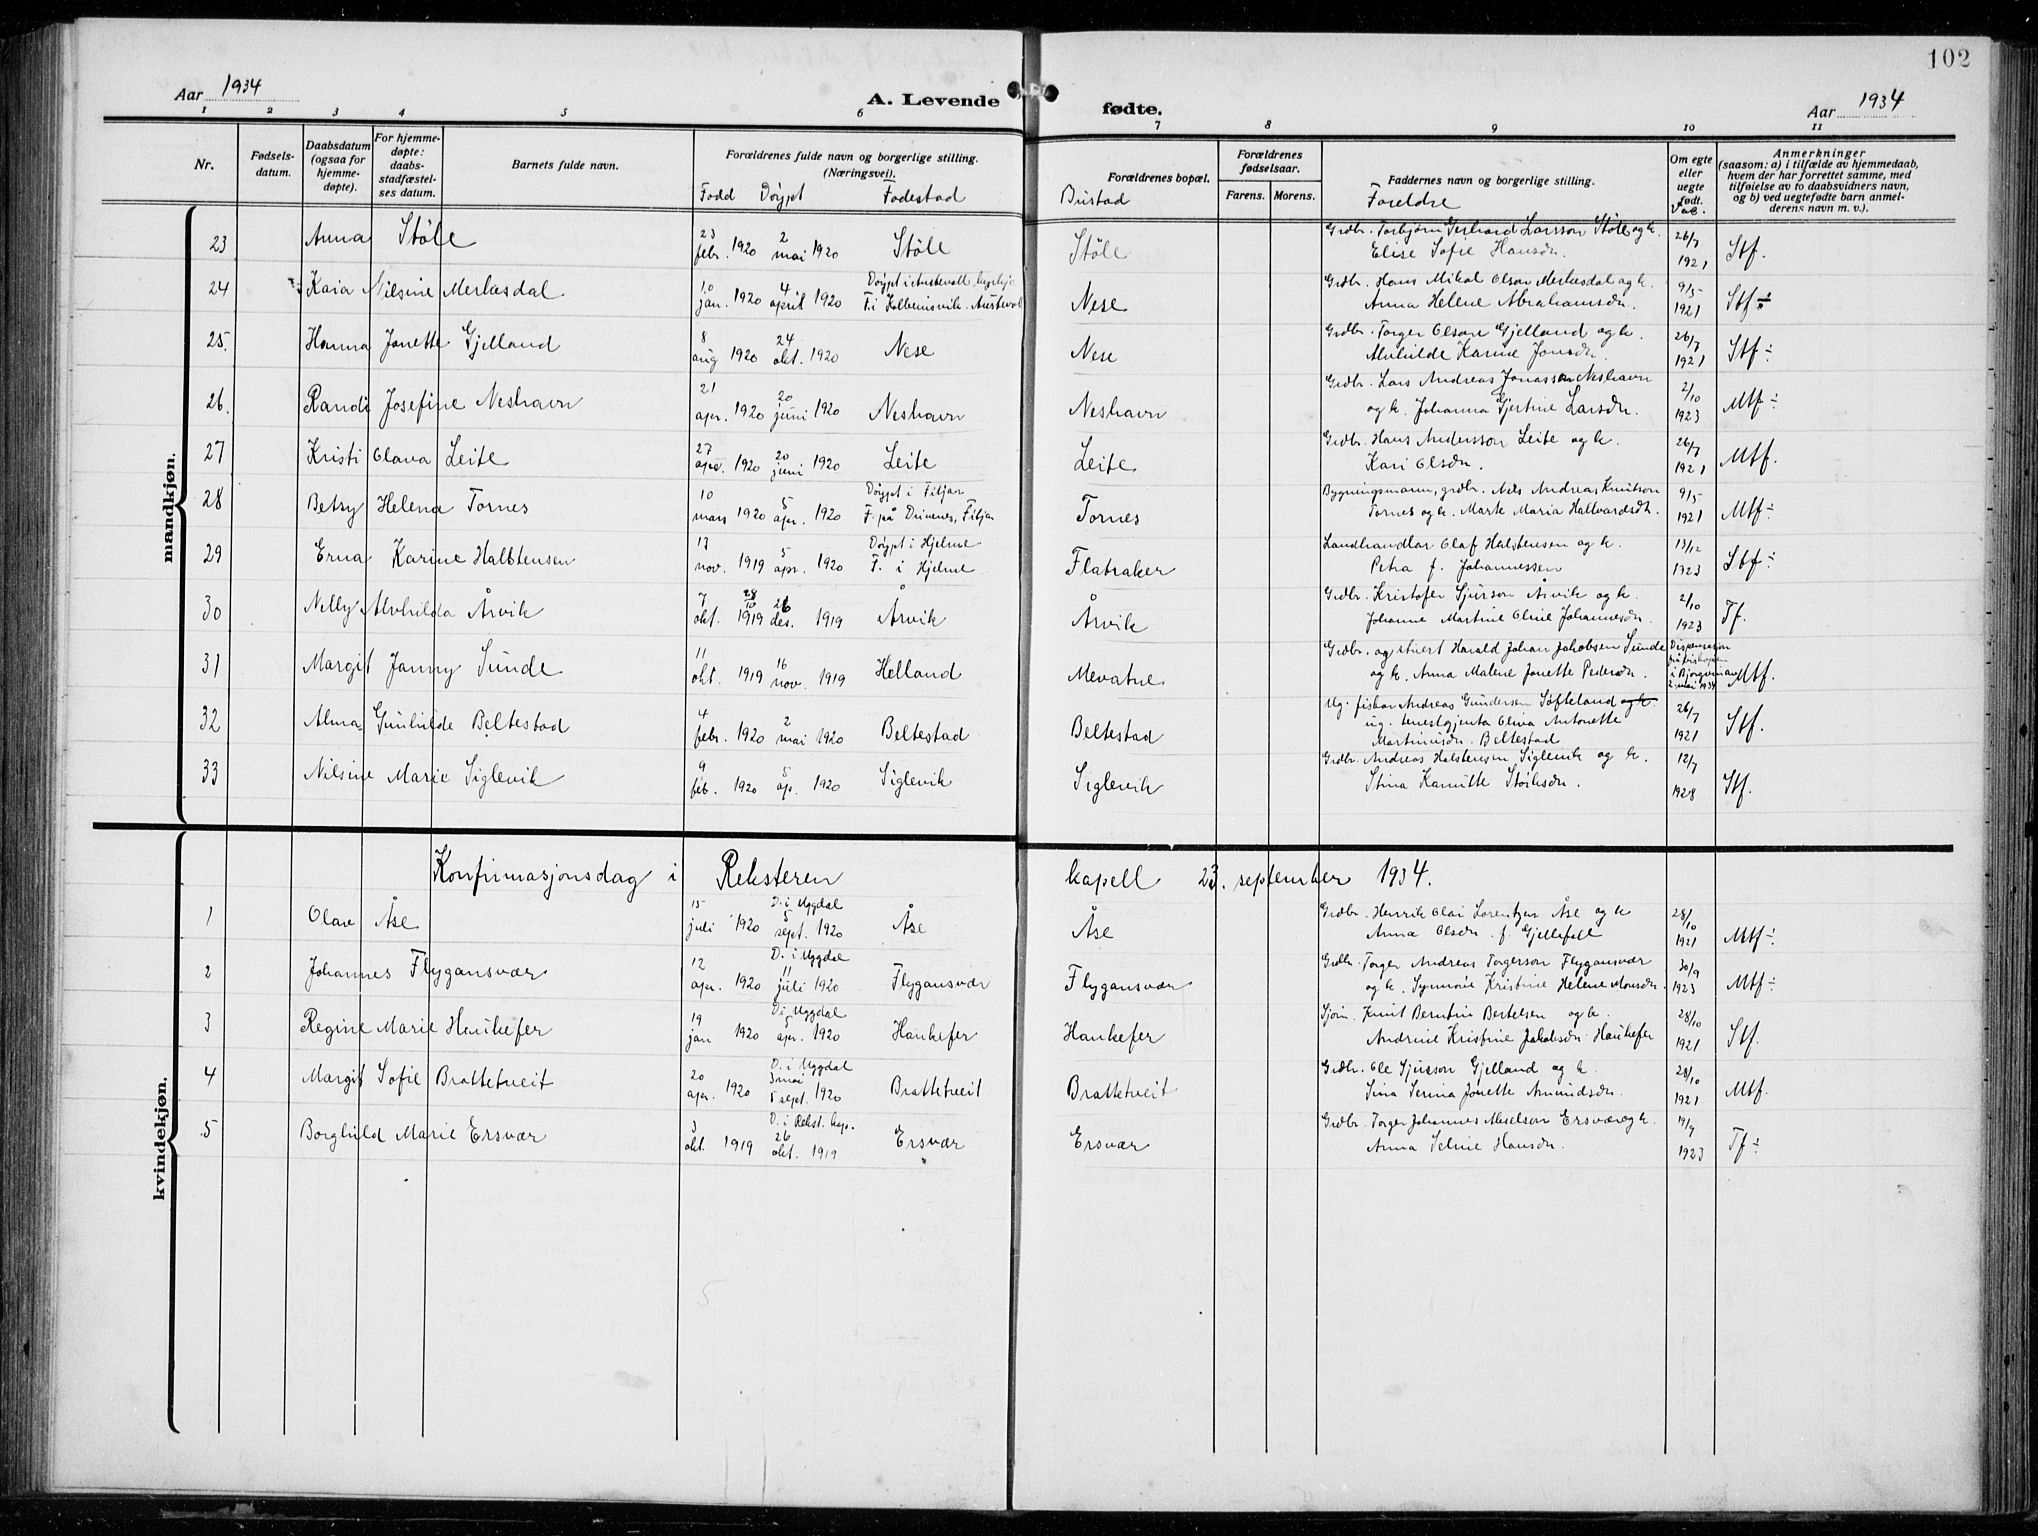 102
Aar 1934
A. Levende fødte.
Aar 1934
1 2 3 4 5 6 7 8 9 10 11
Nr.
Fødsels-
datum.
Daabsdatum
(ogsaa for
hjemme-
døpte).
For hjemme-
døpte:
daabs-
stadfæstel-
ses datum.
Barnets fulde navn.
Forældrenes fulde navn og borgerlige stilling.
(Næringsvei).
Fødd Døypt Fødestad
Forældrenes bopæl.
Bustad
Forældrenes
fødselsaar.
Farens. Morens.
Faddernes navn og borgerlige stilling.
Foreldre
Om egte
eller
uegte
født.
Vac.
Anmerkninger
(saasom: a) i tilfælde av hjemmedaab,
hvem der har forrettet samme, med
tilføielse av to daabsvidners navn,
og b) ved uegtefødte barn anmel-
derens navn m. v.).
mandkjøn.
23 Anna Støle 23 febr. 1920 2 mai 1920 Støle Støle Grdbr. Torbjørn Gerhard Larsson Støle og k. Elise Sofie Hansdr. 26/7 1921 Stf.
24 Kaia Nilsine Merkesdal 10 jan. 1920 4 april 1920 Døypt i Austevoll kyrkje F. i Kolbeinsvik, Austevoll Nese Grdbr. Hans Mikal Olson Merkesdal og k. Anna Helene Abrahamsdr. 9/5 1921 Stf ÷
25. Hanna Jonette Gjelland 8 aug 1920 24 okt. 1920 Nese Nese Grdbr. Torger Olson Gjelland og k. Alvhilde Karine Jonsdr. 26/7 1921 Stf ÷
26. Randi Josefine Neshavn 21 apr. 1920 20 juni 1920 Neshavn Neshavn Grdbr. Lars Andreas Jonasson Neshavn og k. Johanna Gjertine Larsdr. 2/10 1923 Mtf ÷
27 Kristi Olava Leite 27 apr. 1920 20 juni 1920 Leite Leite Grdbr. Hans Andersson Leite og k. Kari Olsdr. 26/7 1921 Mtf.
28 Betsy Helena Tornes 10 mars 1920 5 apr. 1920 Døypt i Fitjar F. på Drivenes, Fitjar Tornes Bygningsmann, grdbr. Nils Andreas Knutson Tornes og k. Marte Maria Hallvardsdt. 9/5 1921 Mtf ÷
29 Erna Karine Halstensen 13 nov. 1919 5 apr. 1920 Døypt i Hjelme F. i Hjelme Flatraker Landhandlar Olaf Halstensen og k. Petra f. Johannessen 13/12 1923 Stf ÷
30 Nelly Alvhilda Årvik 7 okt. 1919 28/10 26 des. 1919 Årvik Årvik Grdbr. Kristofer Sjurson Årvik og k. Johanne Martine Oline Johannesdr. 2/10 1923 Tf.
31 Margit Janny Sunde 11 okt. 1919 16 nov. 1919 Helland Mevatne Grdbr. og stuert Harald Johan Jakobsen Sunde og k. Anna Malene Jonette Pedersdr. Dispensasjon frå biskopen i Bjørgvin av 2. mai 1934 Mtf.
32 Alma Gunhilde Beltestad 4 febr. 1920 2 mai 1920 Beltestad Beltestad Ug. fiskar Andreas Gundersen Søfteland og k. ug. tenestgjenta Oliva Antonette Martinusdr. Beltestad 26/7 1921 Stf.
33 Nilsine Marie Siglevik 9 feb. 1920 5 ap. 1920 Siglevik Siglevik Grdbr. Andreas Halstensen Siglevik og k. Stina Kamitte 12/7 1928 Stf.
kvindekjøn.
Konfirmasjonsdag i Reksteren kapell 23. september 1934.
1 Olav Åse 15 juli 1920 D. i Uggdal 5 sept. 1920 Åse Åse Grdbr. Henrik Olai Lorentzen Åse og k Anna Olsdr. f. Gjellefall 28/10 1921 Mtf ÷
2 Johannes Flygansvær 12 apr. 1920 D. i Uggdal 11 juli 1920 Flygansvær Flygansvær Grdbr. Torger Andreas Torgerson Flygansvær og k. Synnøve Kristine Helene Monsdr. 30/9 1923 Mtf ÷
3 Regine Marie Haukefer 19 jan 1920 D. i Uggdal 5 apr. 1920 Haukefer Haukefer Sjøm. Knut Berntin Bertelsen og k. Andrine Kristine Jakobsdr. Haukefer 28/10 1921 Stf.
4 Margit Sofie Brattetveit 20 apr. 1920 D. i Uggdal 3 mai 5 sept. 1920 Brattetveit Brattetveit Grdbr. Ole Sjurson Gjelland og k. Sina Serina Jonette Amundsdr. 28/10 1921 Mtf.
5 Borghild Marie Ersvær 3 okt. 1919 D. i Rekst. kap. 26 okt. 1919 Ersvær Ersvær Grdbr. Torger Johannes Akselson Ersvær og k. Anna Seline Hansdr. 19/9 1923 Tf ÷
5